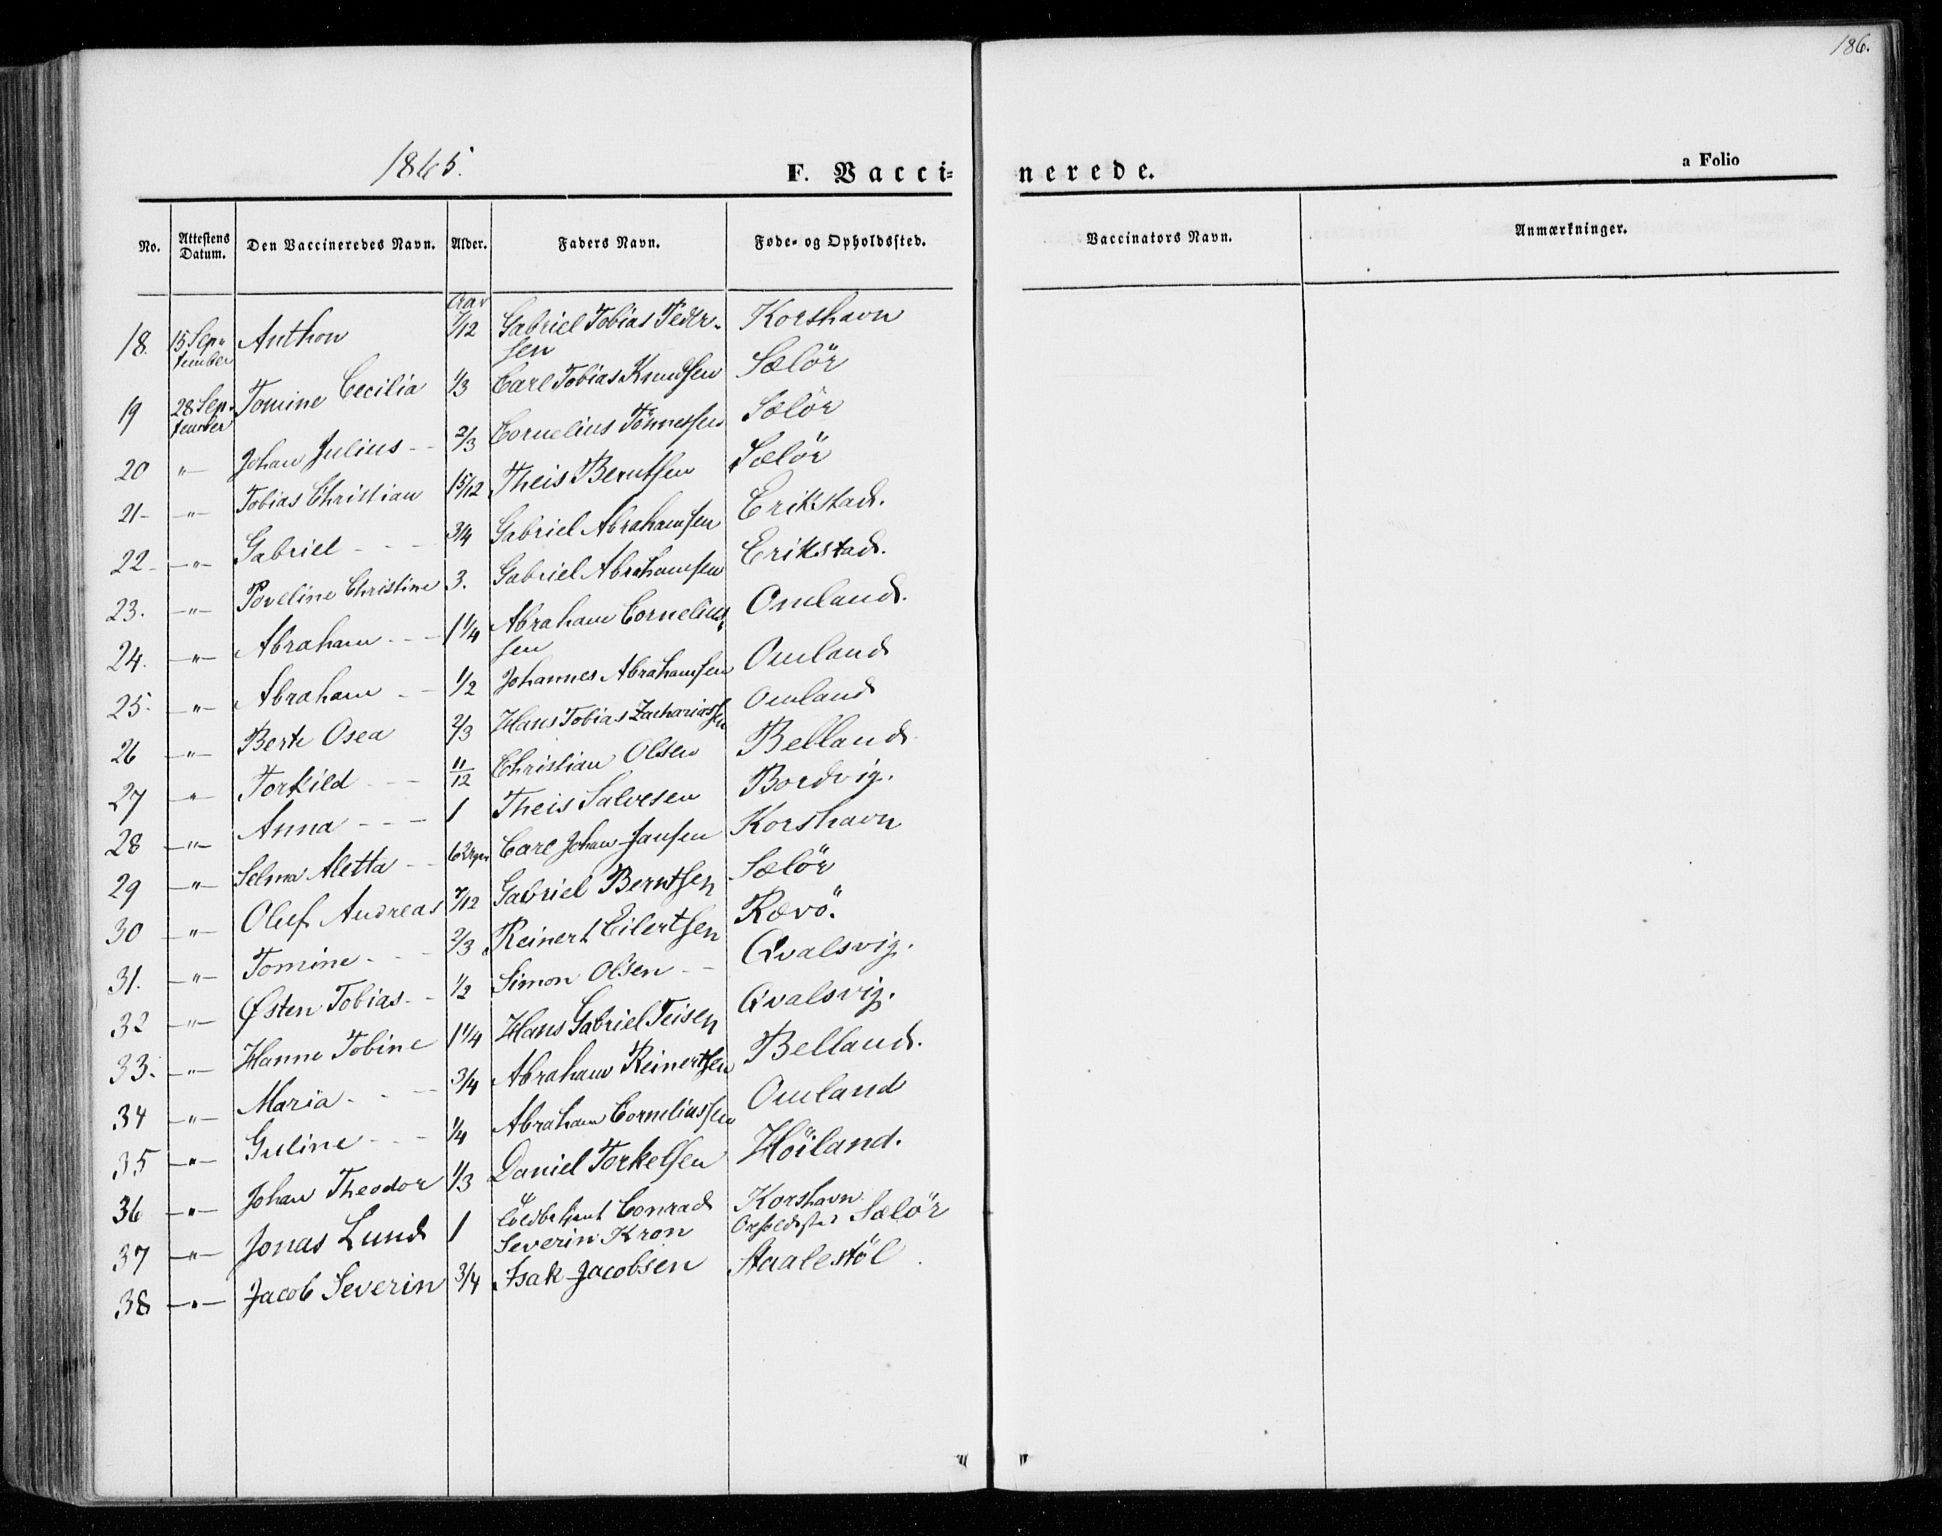 186.
1865.
F. Vacci-
nerede.
a Folio
No. Attestens Datum. Den Vaccineredes Navn. Alder. Faders Navn. Føde- og Opholdssted. Vaccinators Navn. Anmærkninger.
18. 15 Sep- Anthon 7/12 Gabriel Tobias Peder- Korshavn
tember sen
19 28 Sep- Tomine Cecilia 1/3 Carl Tobias Knudsen Sælör
tember
20 " Johan Julius - - 2/3 Cornelius Tönnessen Sælör
21- " Tobias Christian 15/12 Theis Berntsen Sælör
22- " Gabriel - - - 3/4 Gabriel Abrahamsen Erikstad.
23. " Poveline Christine 3. Gabriel Abrahamsen Erikstad.
24. " Abraham - - - 1 1/4 Abraham Cornelius- Omland.
sen
25. " Abraham - - 1/2 Johannes Abrahamsen Omland
26 " Berte Osea 2/3 Hans Tobias Zachariassen Omland
27 " Torkild - - 11/12 Christian Olsen Belland
28 " Anna - - - 1 Theis Salvesen Bordvig.
29 " Selma Aletta - - 6 Uger Carl Johan Jansen Korshavn
30 " Oluf Andreas 7/12 Gabriel Berntsen Sælör
31. " Tomine - - - 2/3 Reinert Eilertsen Rævö.
32 " Østen Tobias - - 1/2 Simon Olsen - - Qvalsvig.
33. " Hanne Tobine 1 1/4 Hans Gabriel Teisen Qvalsvig.
34 " Maria - - - 3/4 Abraham Reinertsen Belland.
35 " Guline - - - 1/4 Abraham Corneliussen Omland
36 " Johan Theodor 1/3 Daniel Torkelsen Höiland.
37 " Jonas Lund 1 Toldbetjent Conrad Korshavn
Severin Kron Opholdssted Sælör
38 " Jacob Severin 3/4 Isak Jacobsen Staalestöl